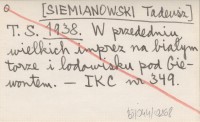 [SIEMIANOWSKI Tadeusz]
T. S. 1938. W przededniu
wielkich imprez na białym
torze i lodowisku pod Gie-
wontem. — IKC nr 349.